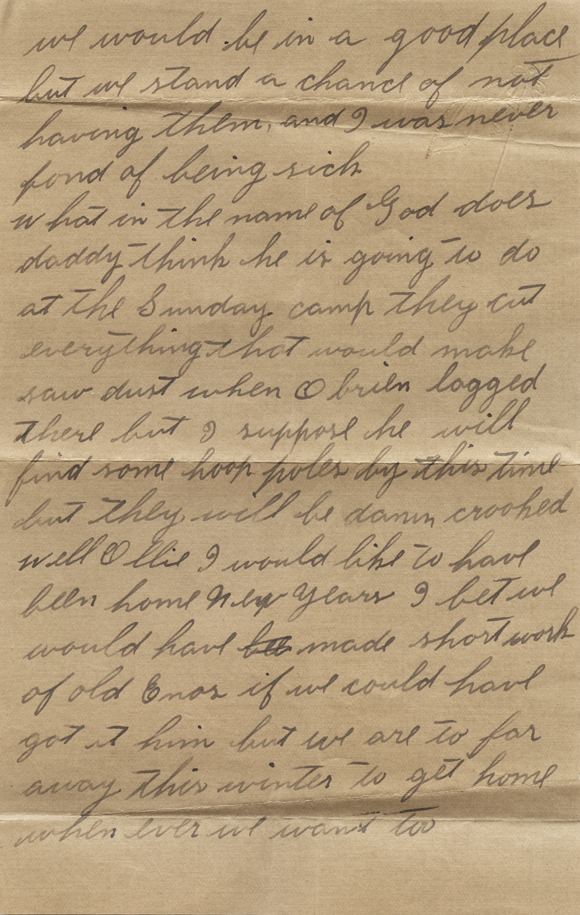 we would be in a good place
but we stand a chance of not
having them, and I was never
fond of being sick
what in the name of God does
daddy think he is going to do
at the Sunday camp they cut
everything that would make
saw dust when O brien logged
there but I suppose he will
find some hoop poles by this time
but they will be damn crooked
well Ollie I would like to have
been home New Years I bet we
would have be made short work
of old Enos if we could have
got it him but we are to far
away this winter to get home
when ever we want too